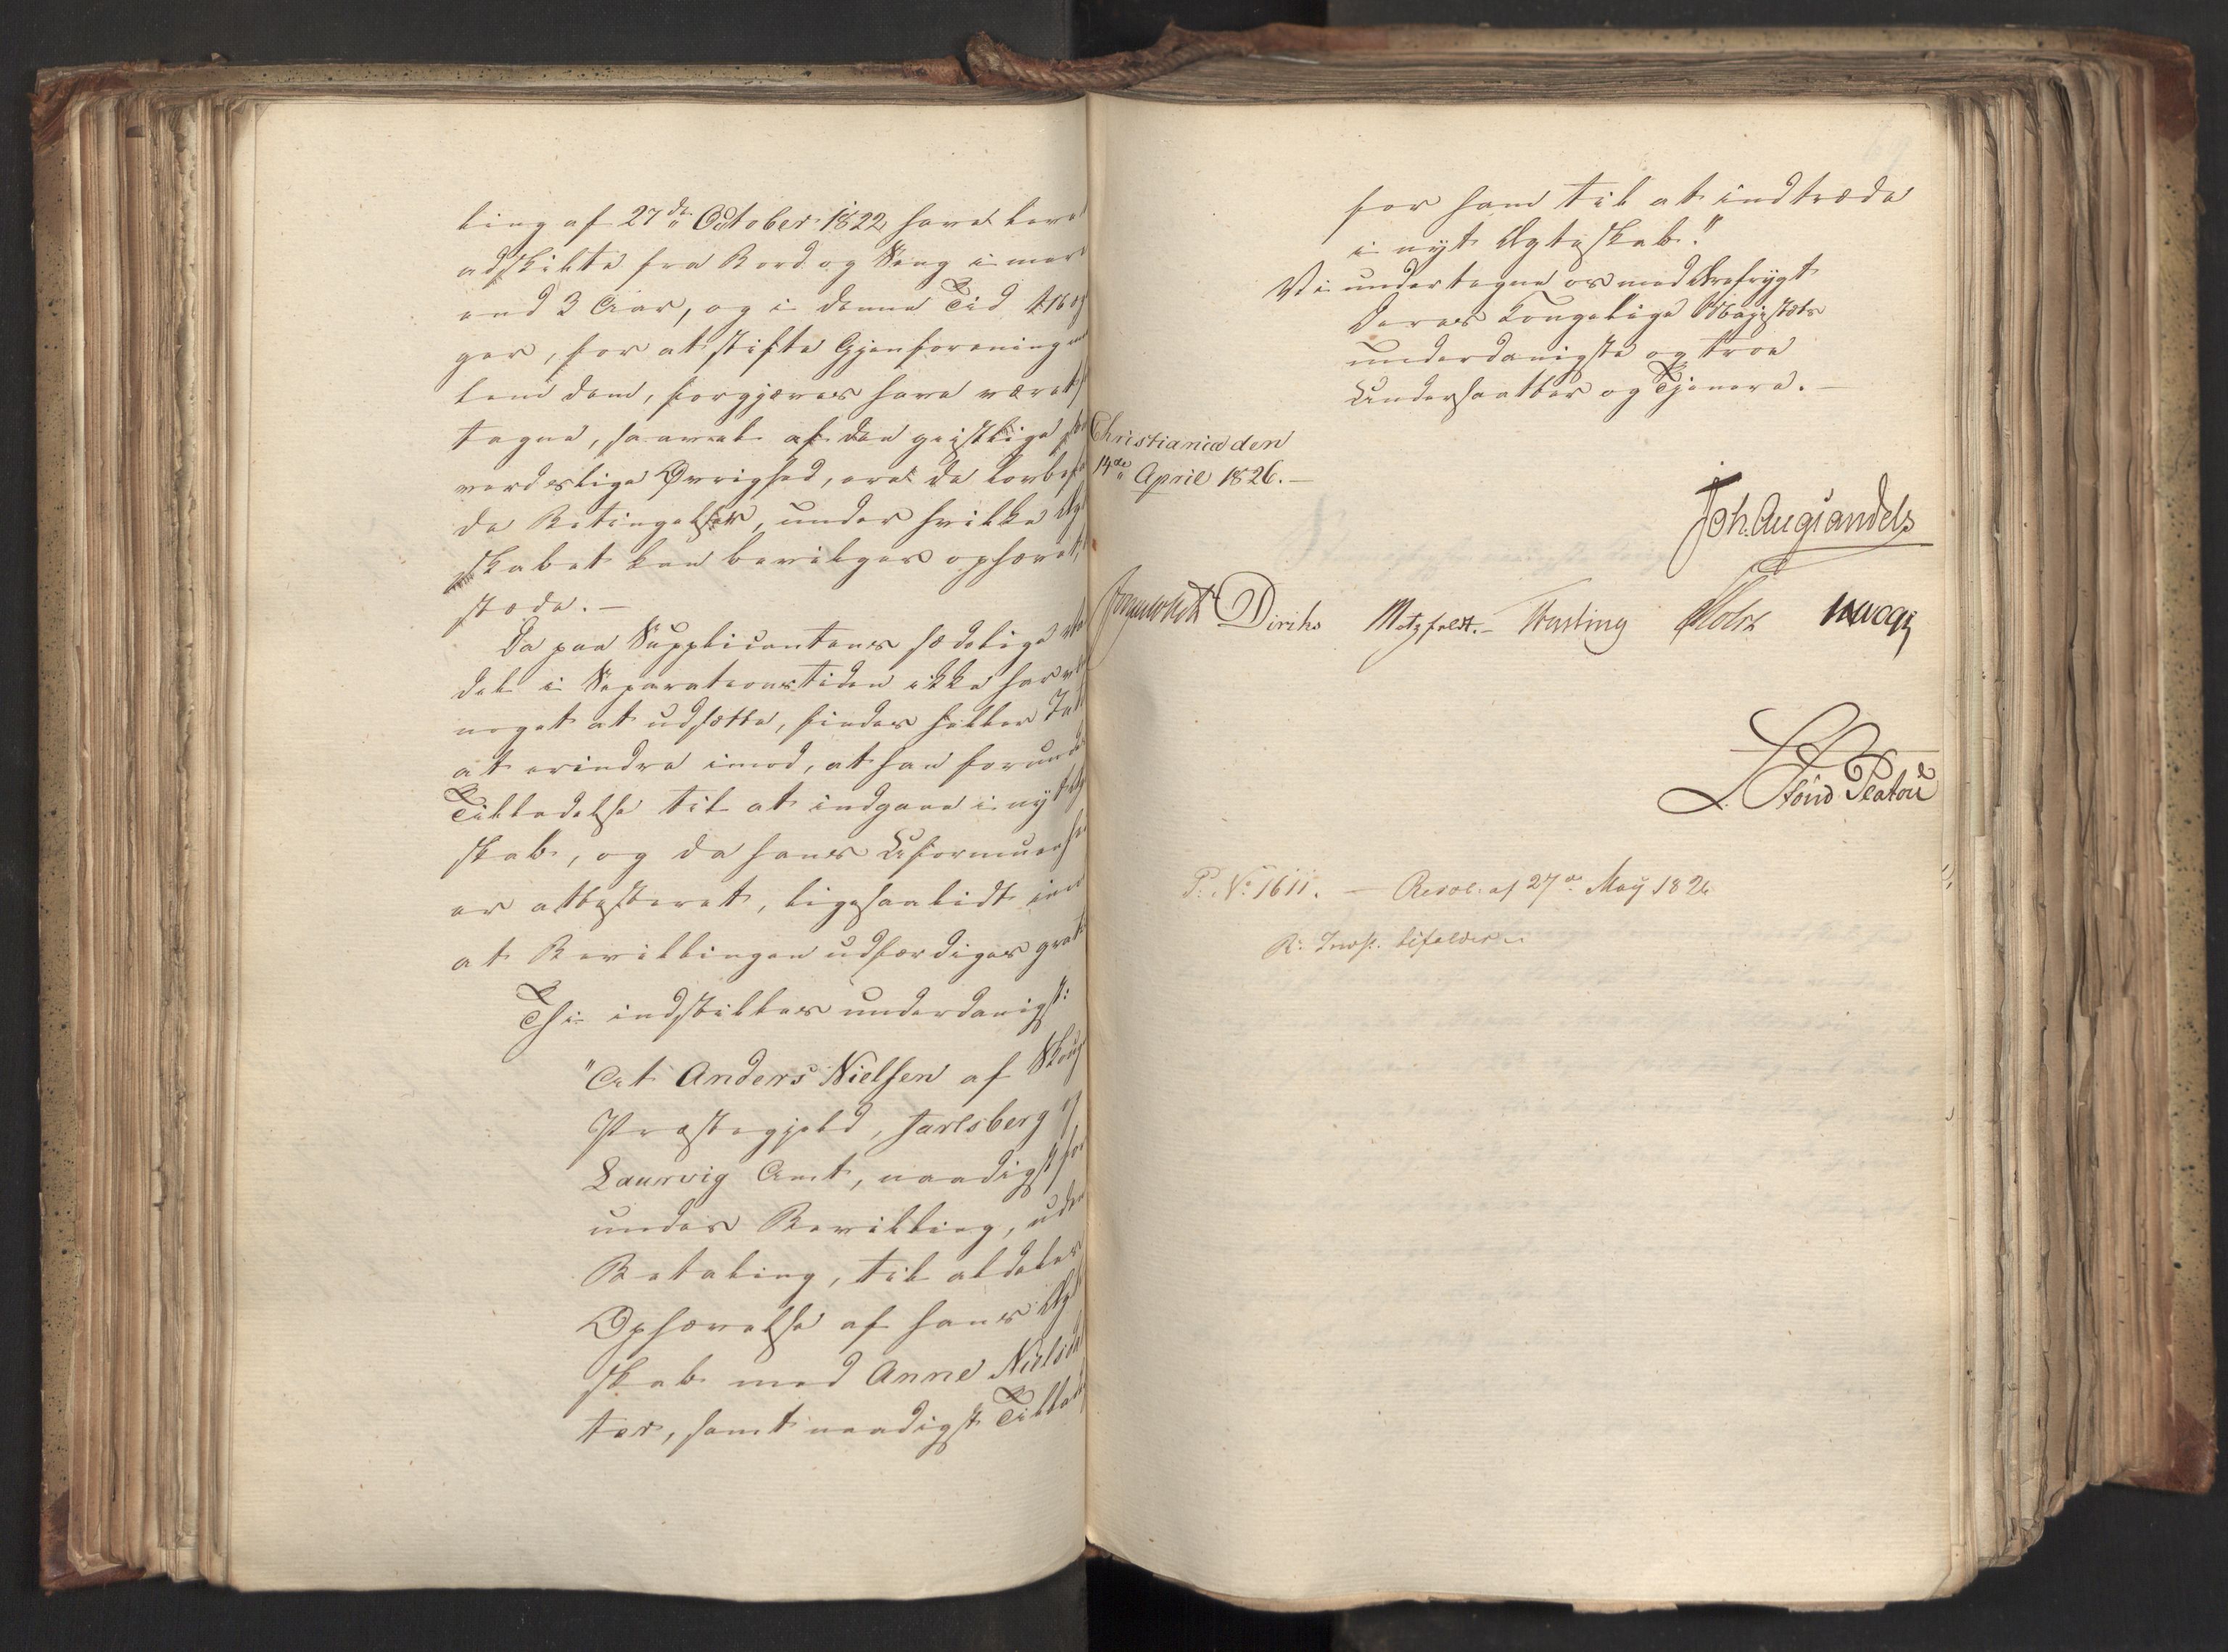 ling af 27de October 1822, have levet
adskilte fra Bord og Seng i mere
end 3 Aar, og i denne Tid
ger, for at stifte Gjenforening
lem dem, forgjæves have været
tagne, saavel af den geistlige
verdslige Øvrighed, ere de lovbe
de Betingelser, under hvilke Ægt
skabet kan bevilges ophævet,
stæde. —
Da paa Supplicantens sædelige
del i Separationstiden ikke har
noget at udsætte, findes heller Int
at erindre imod, at han forundes
Tilladelse til at indgaae i nyt Ægt
skab, og da hans Uformuenhe
er attesteret, ligesaalidt imod
at Bevillingen udfærdiges grat
Thi indstilles underdanigst:
"At Anders Nielsen af Skoug
Præstegjeld, Jarlsberg og
Laurvig Amt, naadigst for
undes Bevilling, uden
Betaling, til aldeles
Ophævelse af hans Ægt
skab med Anne Nielsdat
ter, samt naadigst Tillade
for ham til at indtræde
i nyt Ægteskab."
Vi undertegne os med Ærefrygt
Deres Kongelige Majestæts
underdanigste og troe
Undersaatter og Tjenere. —
Christiania den
14de April 1826. —
Joh. Aug. Sandels
Diriks Motzfeldt. — Treschow Holst
P: No 1611. — Resol. af 27de May 1826